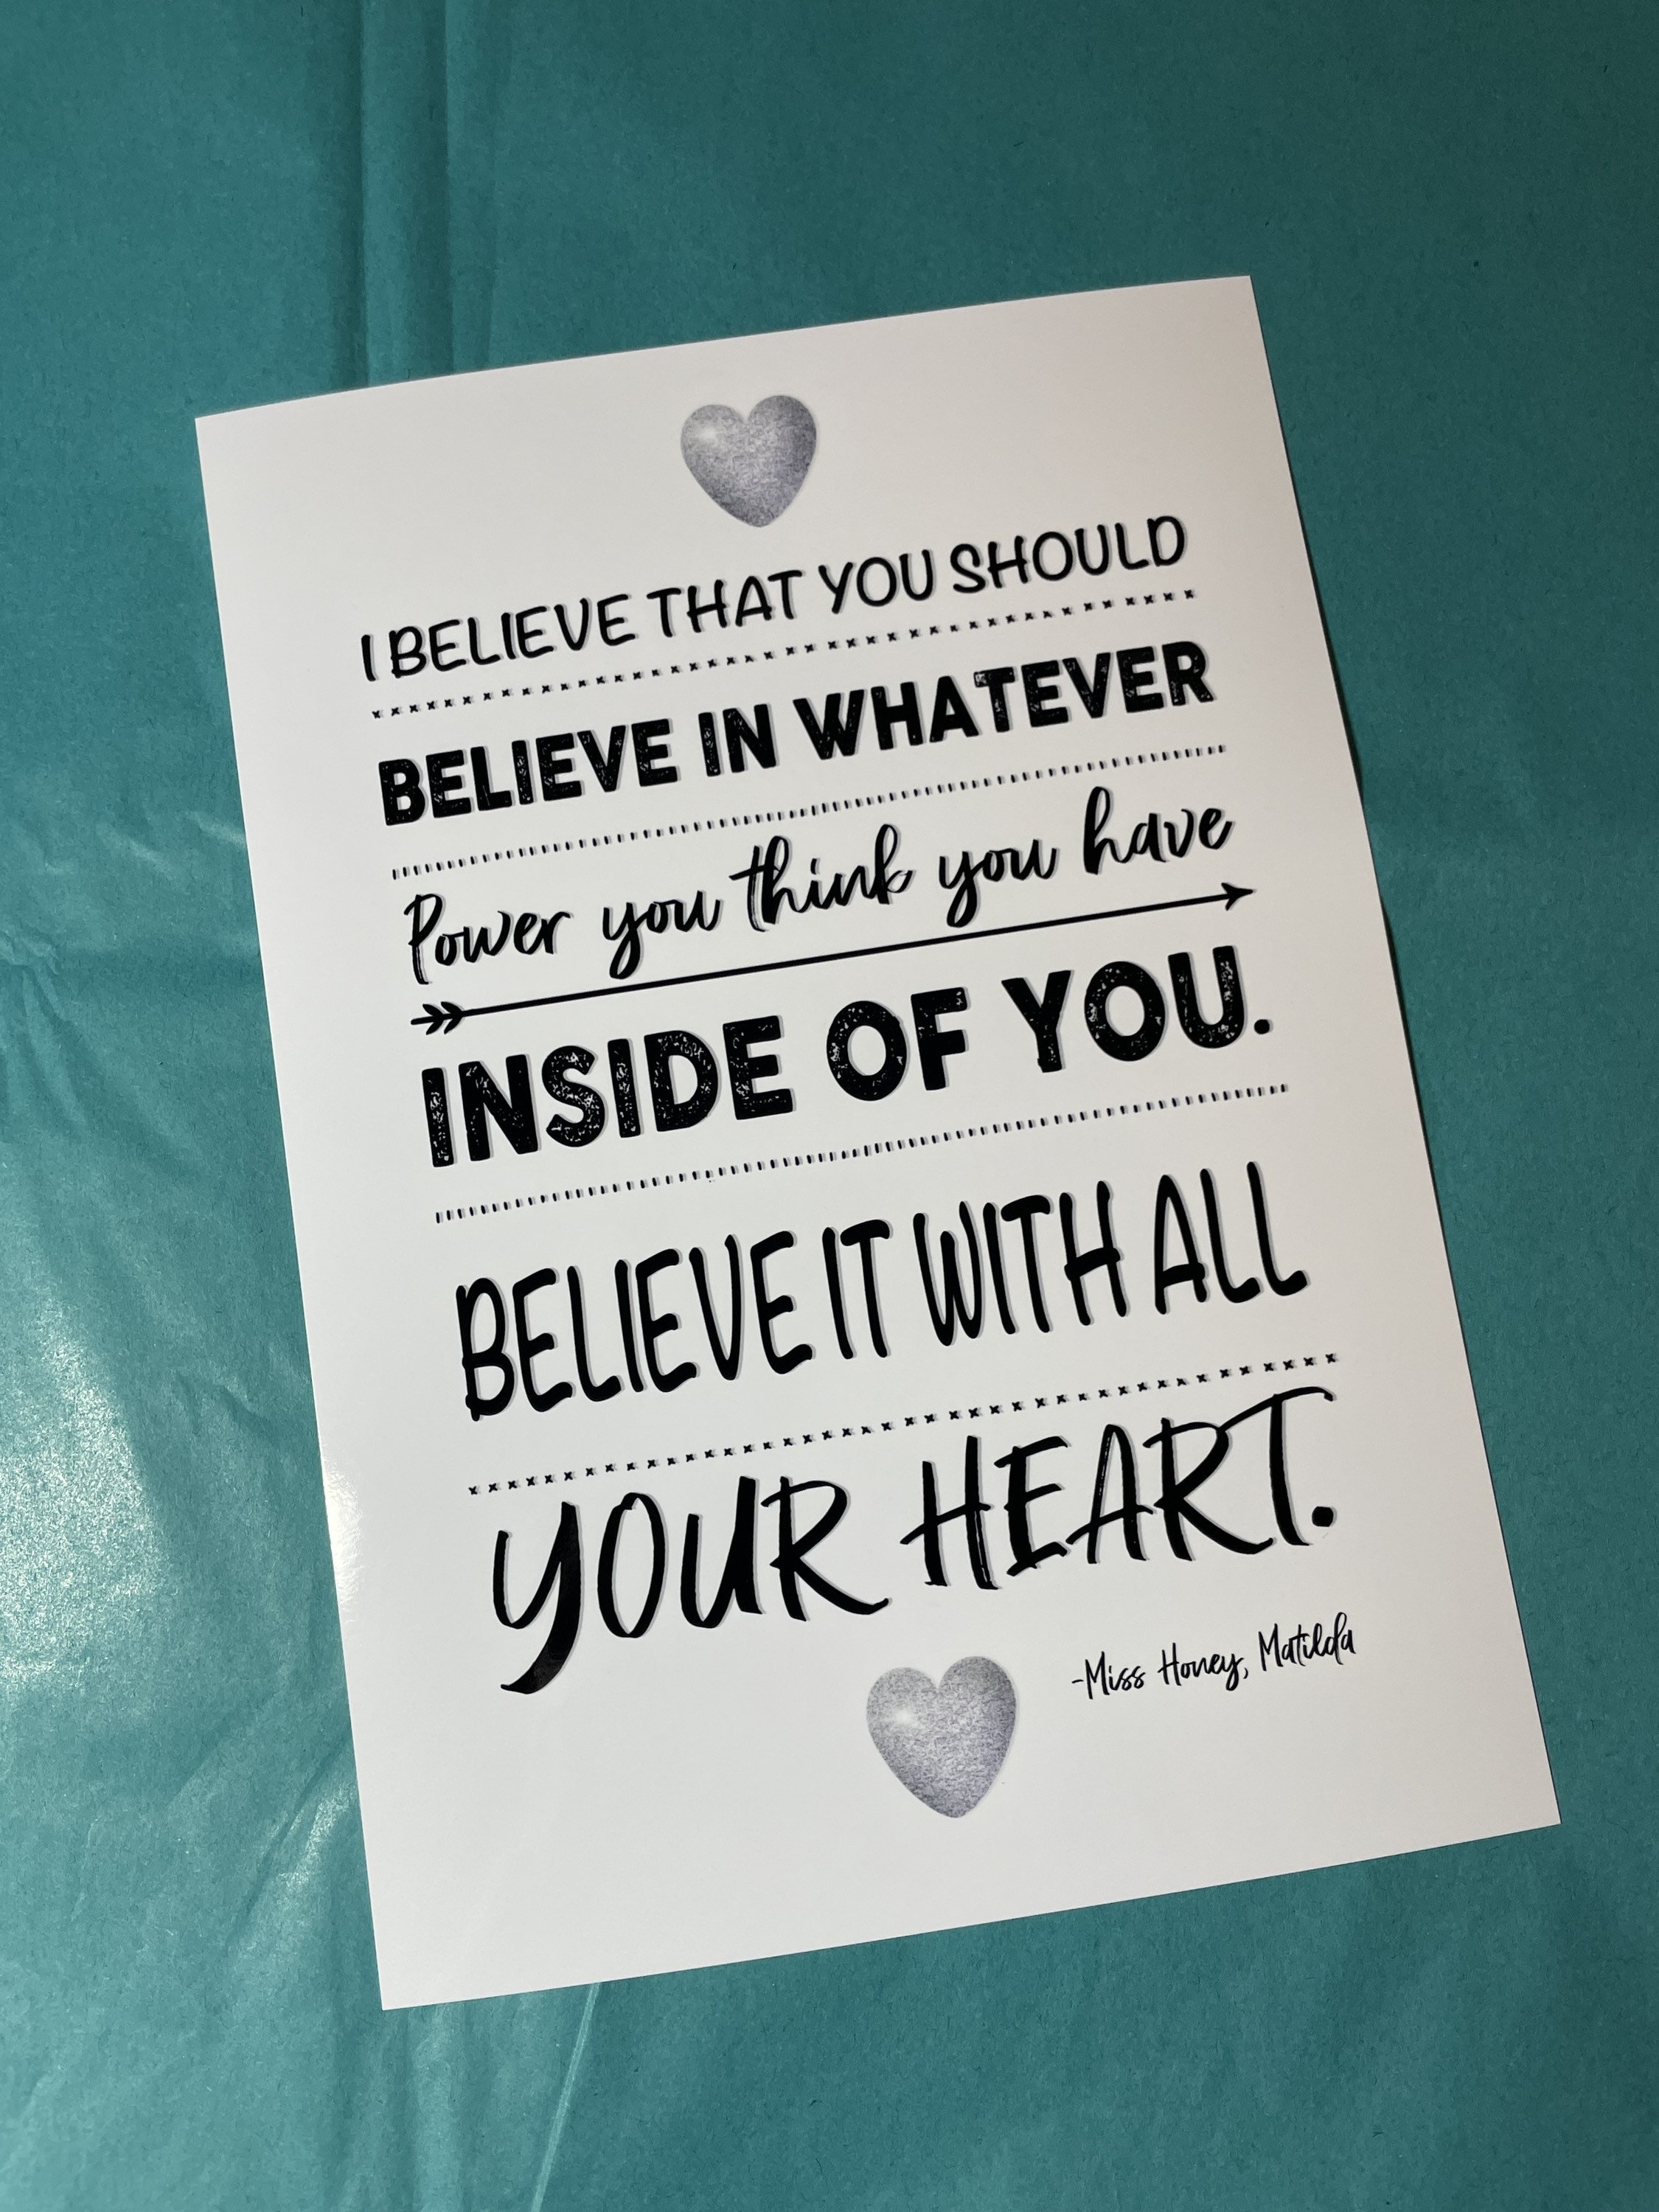 I BELIEVE THAT YOU SHOULD
BELIEVE IN WHATEVER
Power you think you have
INSIDE OF YOU.
BELIEVE IT WITH ALL
YOUR HEART.
-Miss Honey, Matilda